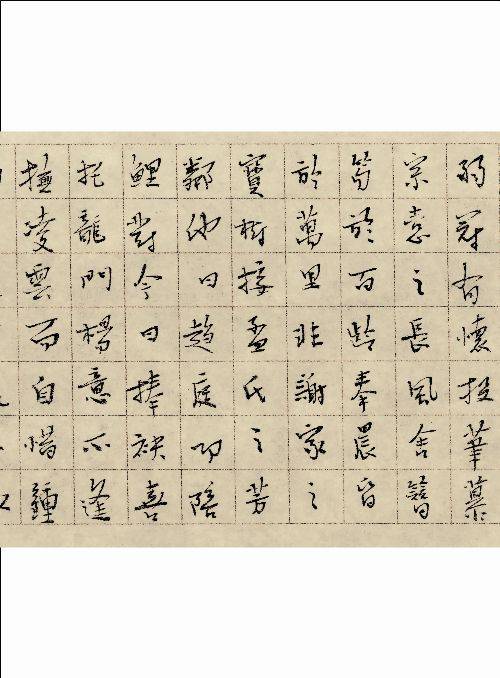 弱冠有懷投筆慕
宗愨之長風舍簪
笏於百齡奉晨昏
於萬里非謝家之
寶樹接孟氏之芳
鄰他日趨庭叨陪
鯉對今日捧袂喜
托龍門楊意不逢
撫凌雲而自惜鍾